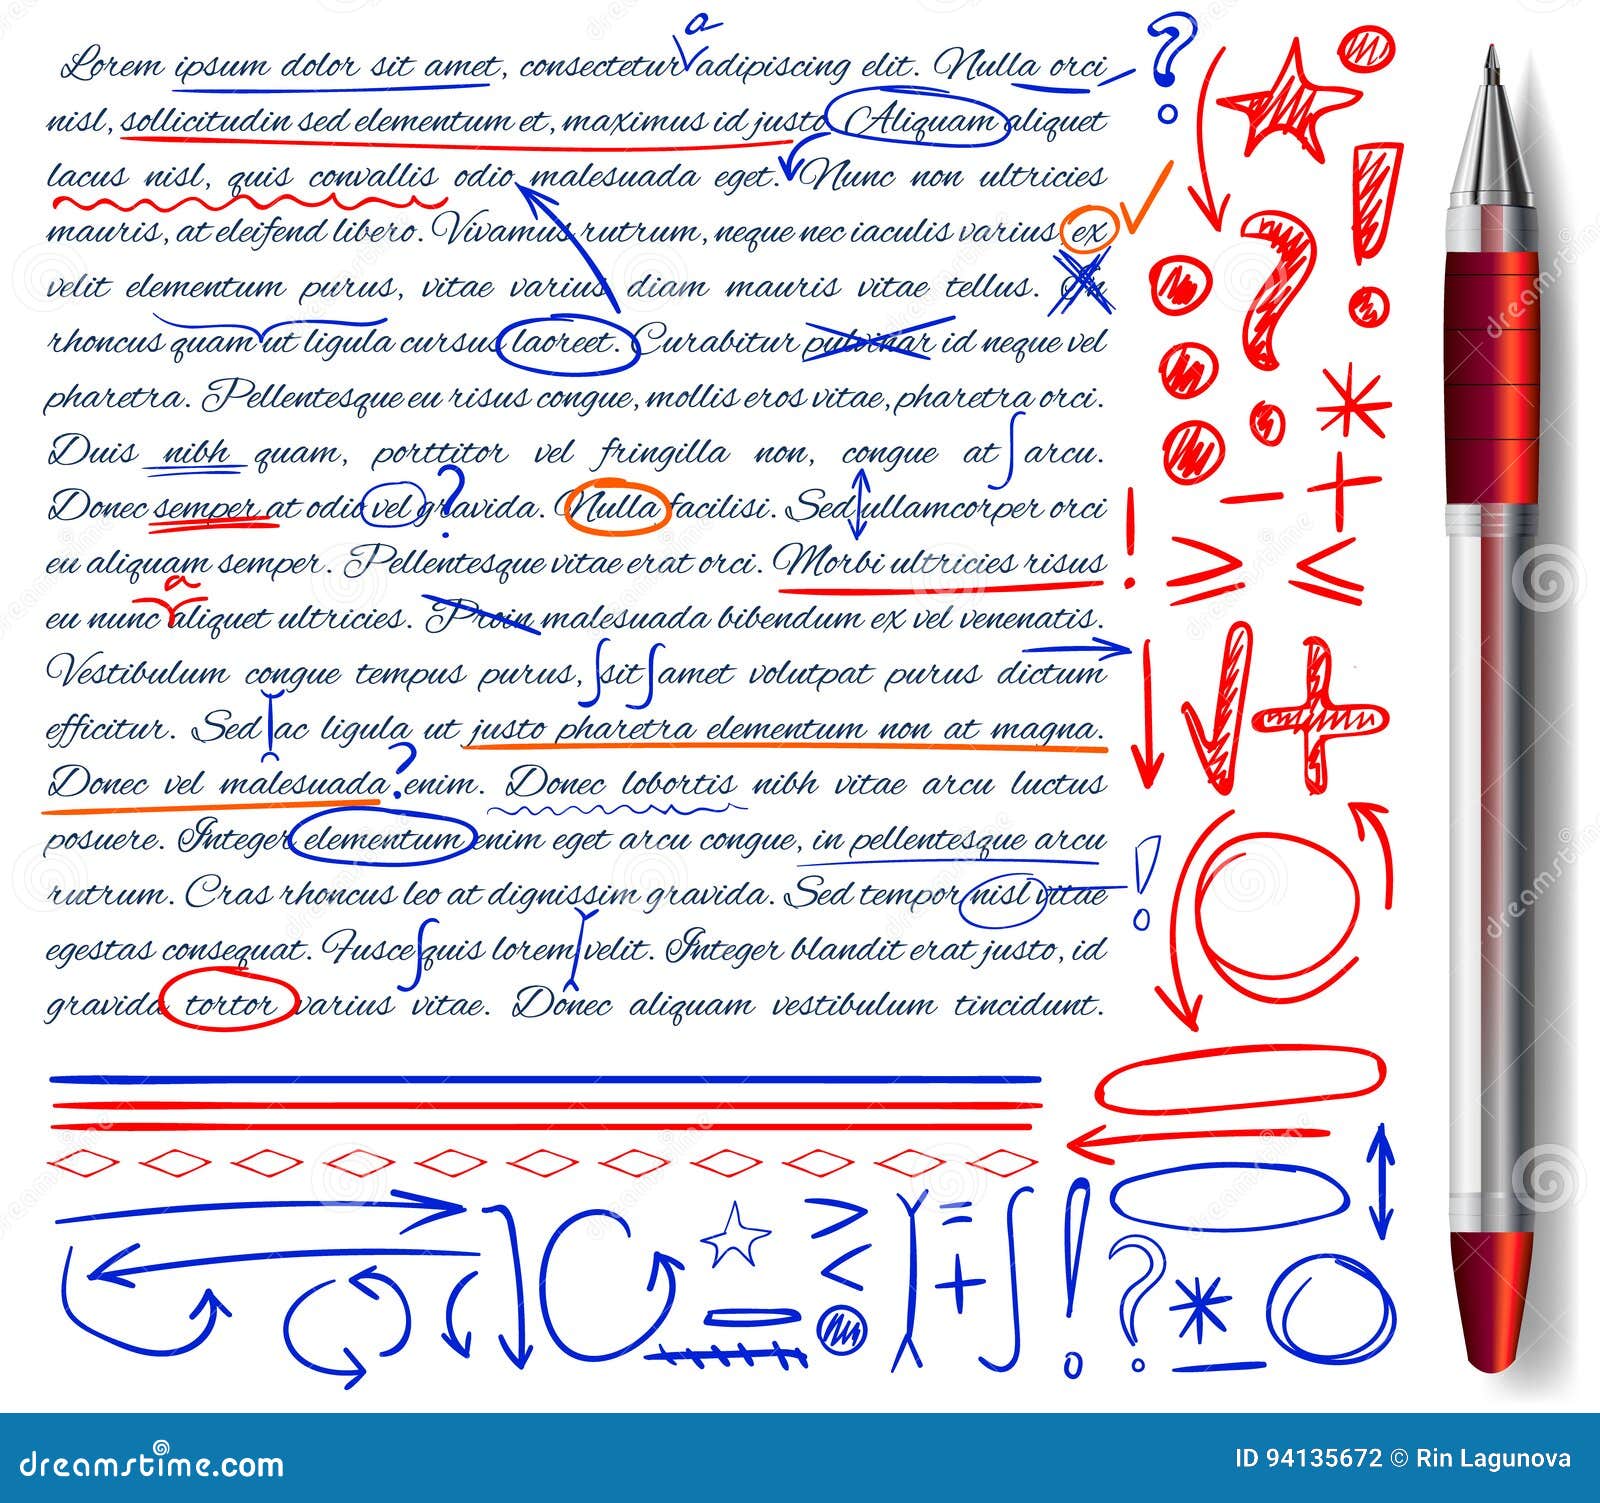 a
Lorem ipsum dolor sit amet, consectetur adipiscing elit. Nulla orci
nisl, sollicitudin sed elementum et, maximus id justo Aliquam aliquet
lacus nisl, quis convallis odio malesuada eget. Nunc non ultricies
mauris, at eleifend libero. Vivamus rutrum, neque nec iaculis varius ex
velit elementum purus, vitae varius diam mauris vitae tellus. In
rhoncus quam ut ligula cursus laoreet. Curabitur pulvinar id neque vel
pharetra. Pellentesque eu risus congue, mollis eros vitae, pharetra orci.
Duis nibh quam, porttitor vel fringilla non, congue at arcu.
Donec semper at odio vel gravida. Nulla facilisi. Sed ullamcorper orci
eu aliquam semper. Pellentesque vitae erat orci. Morbi ultricies risus
a
eu nunc aliquet ultricies. Proin malesuada bibendum ex vel venenatis.
Vestibulum congue tempus purus, sit amet volutpat purus dictum
efficitur. Sed ac ligula ut justo pharetra elementum non at magna.
Donec vel malesuada enim. Donec lobortis nibh vitae arcu luctus
posuere. Integer elementum enim eget arcu congue, in pellentesque arcu
rutrum. Cras rhoncus leo at dignissim gravida. Sed tempor nisl vitae
egestas consequat. Fusce quis lorem velit. Integer blandit erat justo, id
gravida tortor varius vitae. Donec aliquam vestibulum tincidunt.
dreamstime.com
ID 94135672 © Rin Lagunova